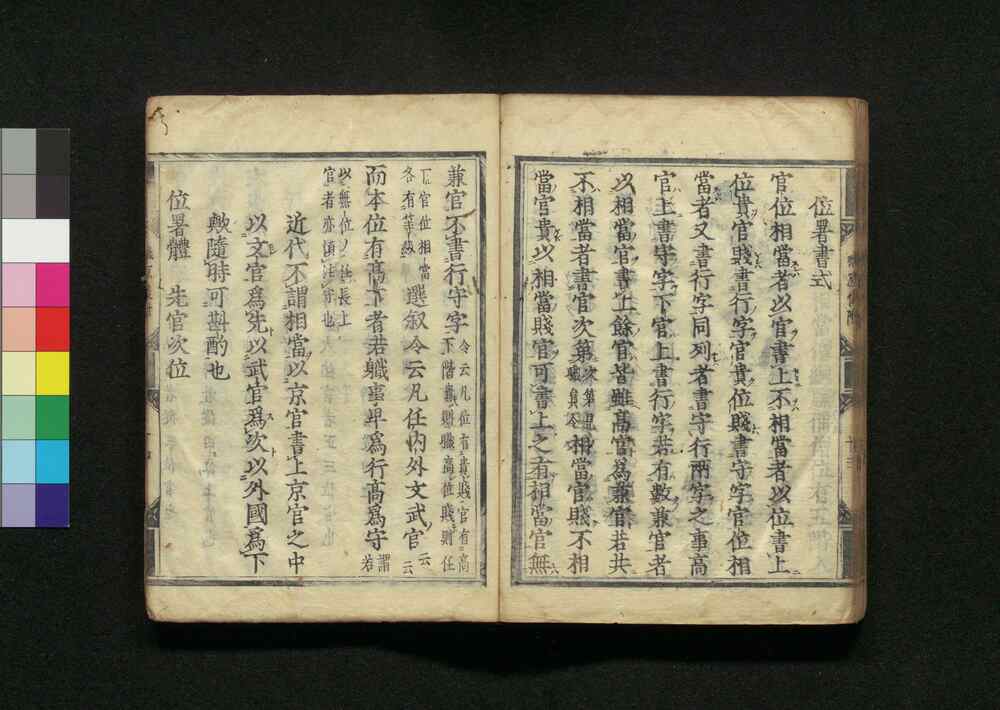 位署書式
官位相當者以官書上不相當者以位書上
位貴官賤書行字官貴位賤書守字官位相
當者又書行字同列者書守行兩字之事高
官上書守字下官上書行字若有數兼官者
以相當官書上餘官皆雖高官為兼官若共
不相當者書官次第相當官賤不相
當官貴以相當賤官可書上之若相當官無
兼官不書行守字令云凡位有貴賤官有高
下階貴則職高位賤則任
下官位相當
各有等級選叙令云凡任内外文武官云云
而本位有高下者若職事卑為行高為守謂若
以無位任長上
官者亦須注守也
近代不謂相當以京官書上京官之中
以文官為先以武官為次以外國為下
歟隨時可斟酌也
位署體 先官次位